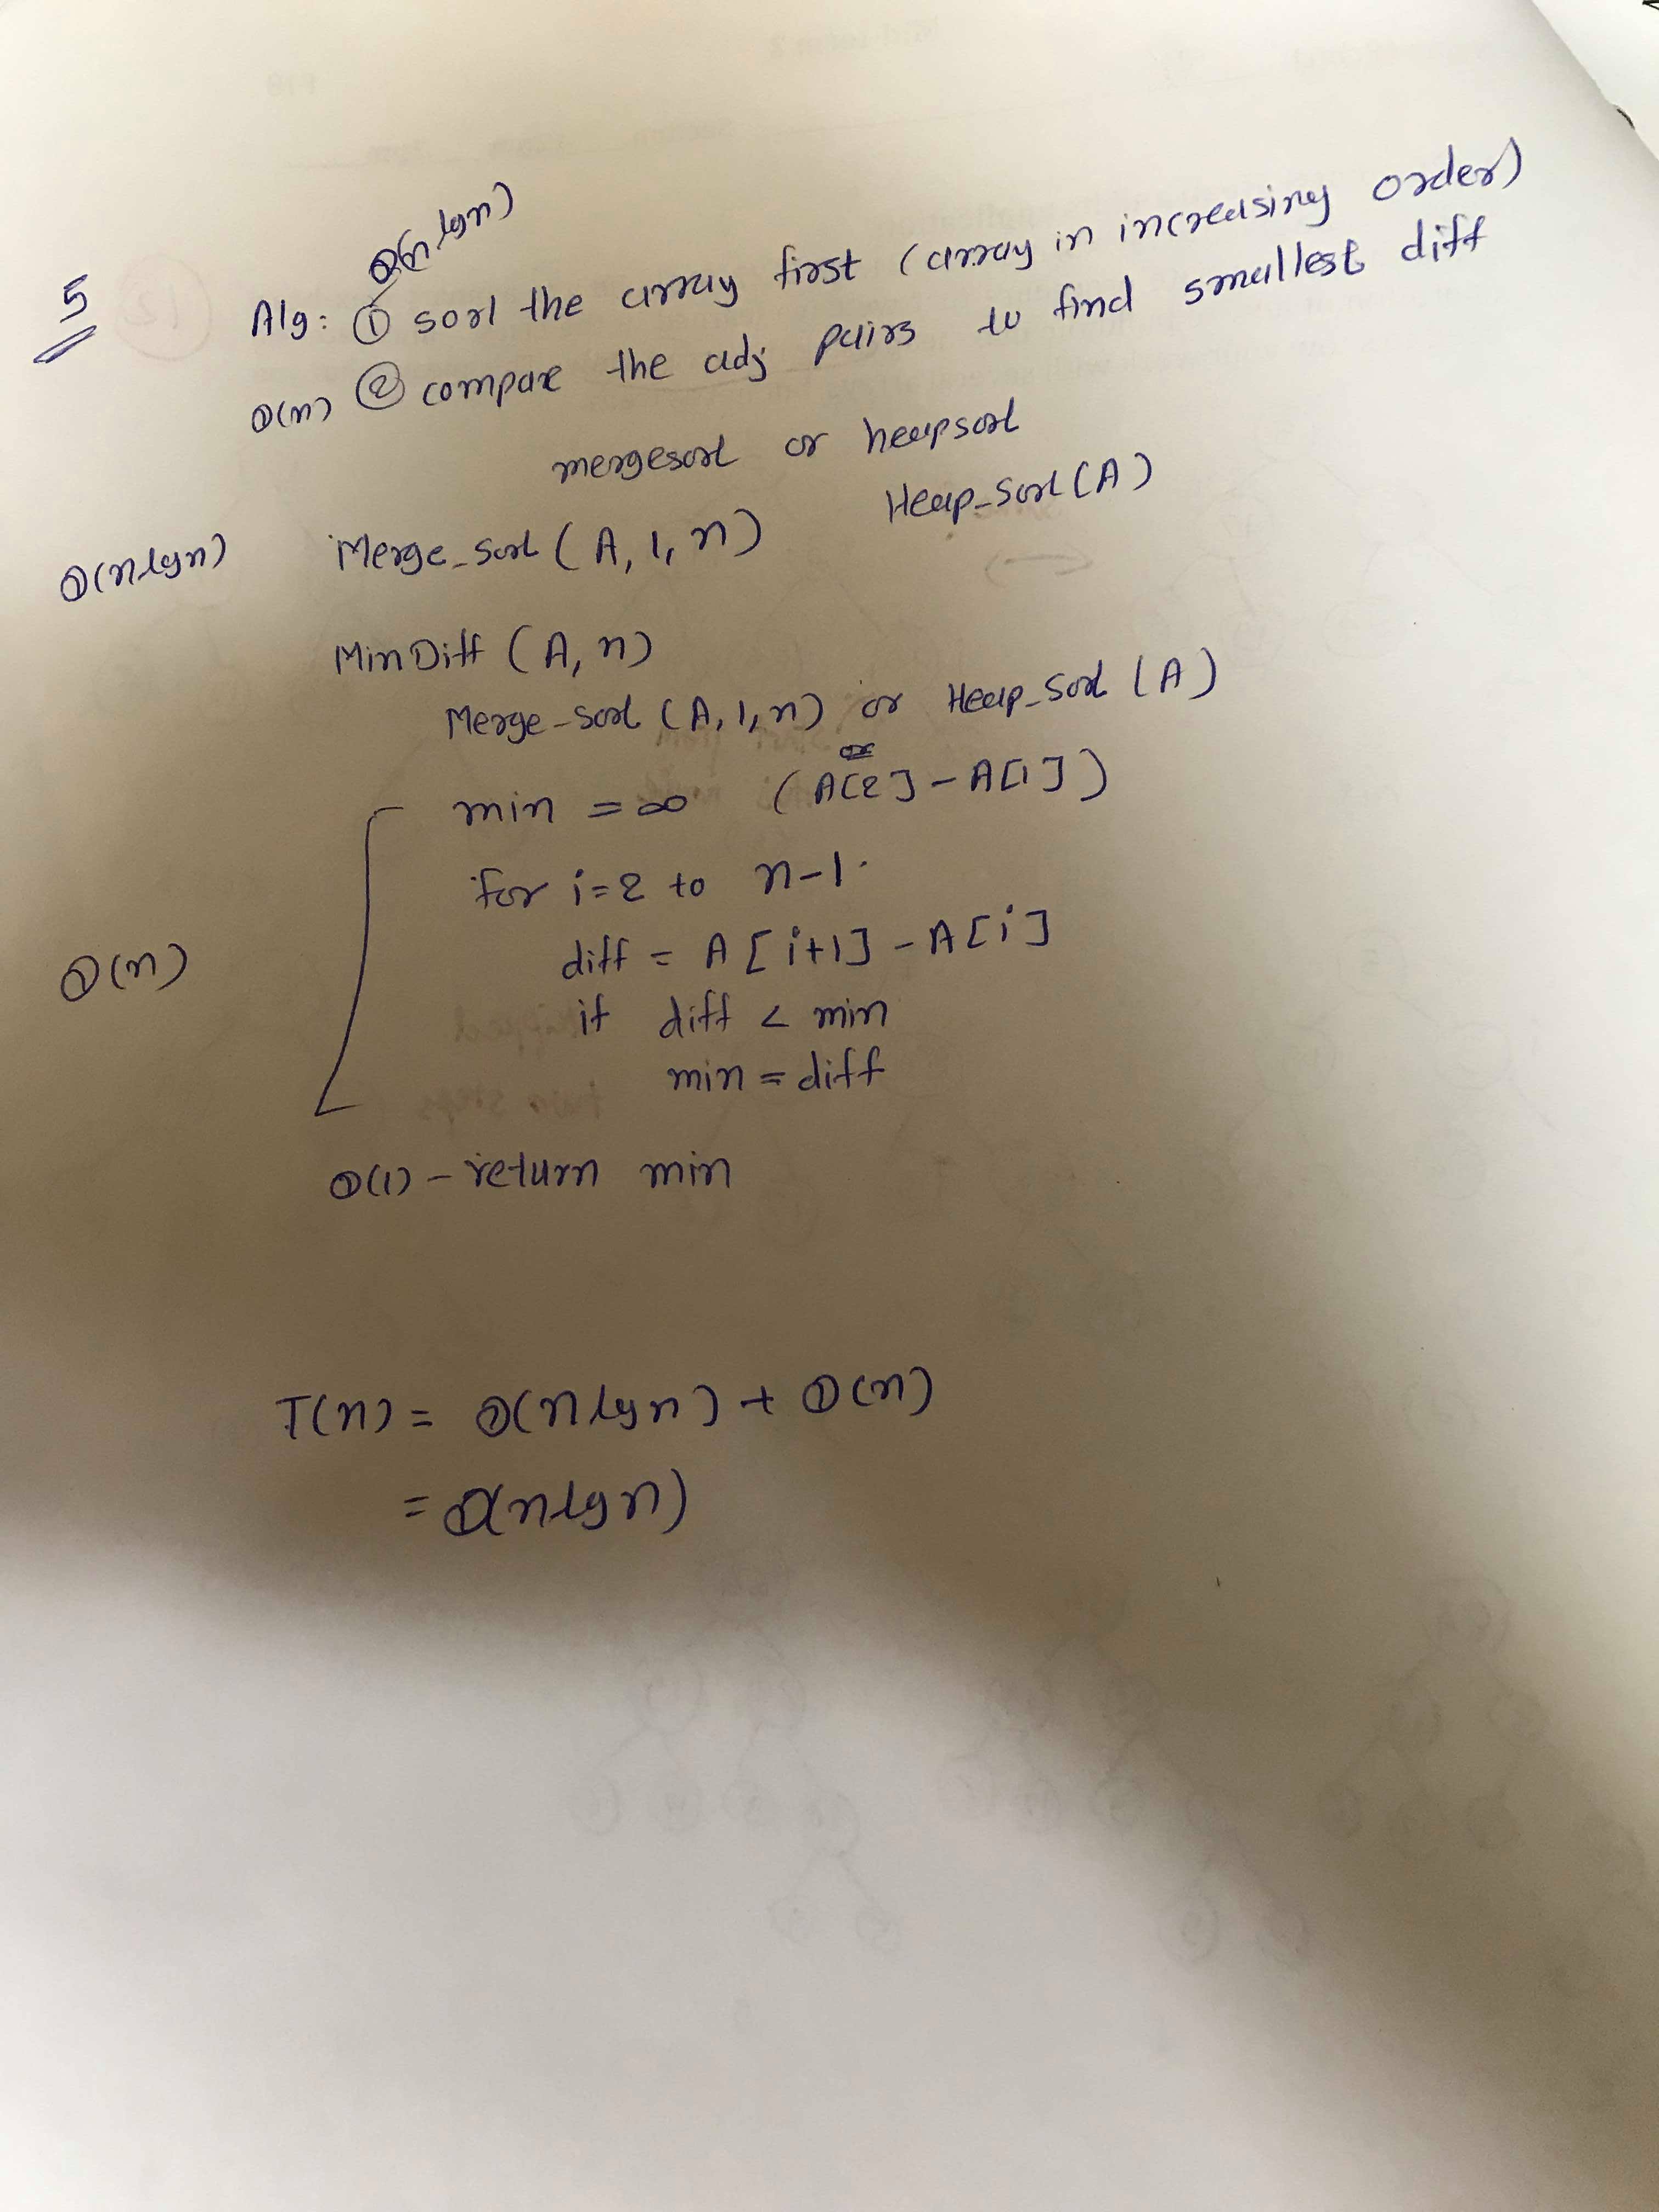 5
Θ(n lgn)
Alg: ① sort the array first (array in increasing order)
Θ(n) ② compare the adj pairs to find smallest diff
mergesort or heapsort
Θ(nlgn) Merge_sort (A, 1, n) Heap_sort (A)
MinDiff (A, n)
Merge-sort (A, 1, n) or Heap_sort (A)
or
min = ∞ (A[2] - A[1])
for i=2 to n-1
Θ(n) diff = A[i+1] - A[i]
if diff < min
min = diff
Θ(1) - return min
T(n) = Θ(nlgn) + Θ(n)
= Θ(nlgn)